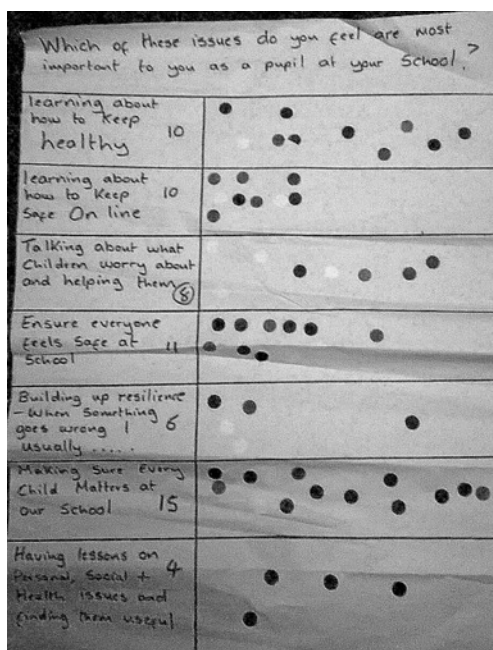 Which of these issues do you feel are most
important to you as a pupil at your School?
learning about
how to Keep
healthy 10
learning about
how to Keep 10
Safe On line
Talking about what
Children worry about
and helping them 8
Ensure everyone
feels Safe at
School 11
Building up resilience
- When Something
goes wrong I 6
usually .....
Making Sure Every
Child Matters at
our School 15
Having lessons on
Personal, Social + 4
Health issues and
finding them useful